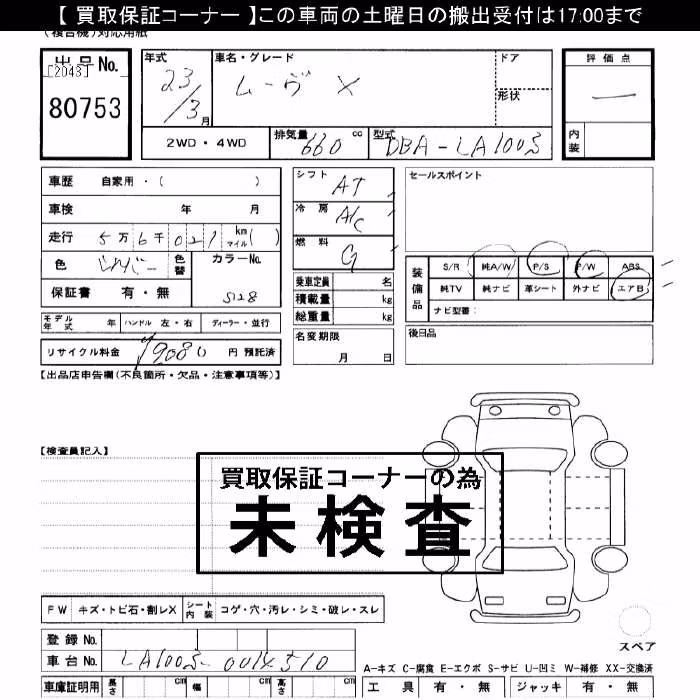 【 買取保証コーナー 】この車両の土曜日の搬出受付は17:00まで
(複合機)対応用紙
出品No.
[2043]
80753
年式
23/3月
車名・グレード
ムーヴ X
ドア
形状
評価点
内装
2WD・4WD
排気量 660 cc
型式 DBA-LA100S
車歴 自家用・( )
車検 年 月
走行 5万6千021 km マイル( )
色 シルバー 色替 カラーNo.
保証書 有・無 S28
モデル年式 年 ハンドル 左・右 ディーラー・並行
リサイクル料金 9080 円 預託済
シフト AT
冷房 A/C
燃料 G
乗車定員 名
積載量 kg
総重量 kg
名変期限
月 日
セールスポイント
装備品
S/R 純A/W P/S P/W ABS
純TV 純ナビ 革シート 外ナビ エアB
ナビ型番:
後日品
【出品店申告欄(不良箇所・欠品・注意事項等)】
【検査員記入】
買取保証コーナーの為
未検査
FW キズ・トビ石・割レX シート内装 コゲ・穴・汚レ・シミ・破レ・スレ
登録No.
車台No. LA100S-0014510
車庫証明用 長さ cm 幅 cm 高さ cm
スペア
A-キズ C-腐食 E-エクボ S-サビ U-凹ミ W-補修 XX-交換済
工具 有・無 ジャッキ 有・無